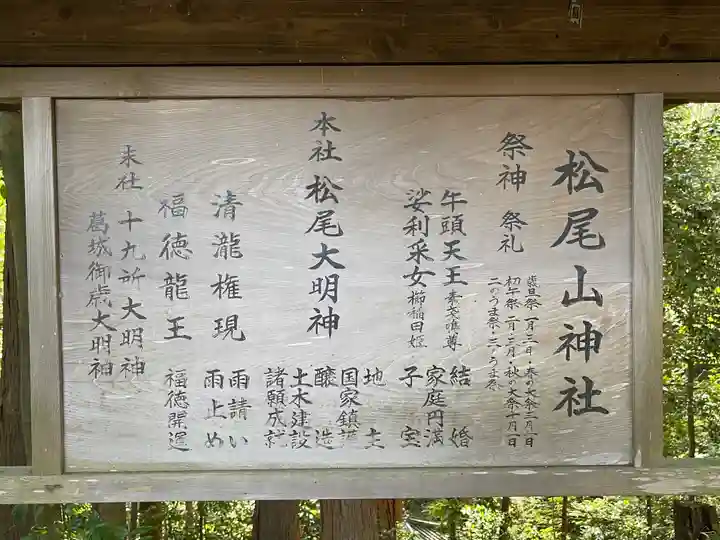 松尾山神社
祭神 祭礼
歳旦祭 一月一日・春の大祭三月一日
初午祭 二月・三月・秋の大祭十月一日
二のうま祭・三のうま祭
牛頭天王 素戔嗚尊 結婚
娑利采女 櫛稲田姫 家庭円満
子宝
本社 松尾大明神
地主
国家鎮護
醸造
土木建設
諸願成就
清瀧権現 雨請い
雨止め
福徳龍王 福徳開運
末社 十九所大明神
葛城御歳大明神